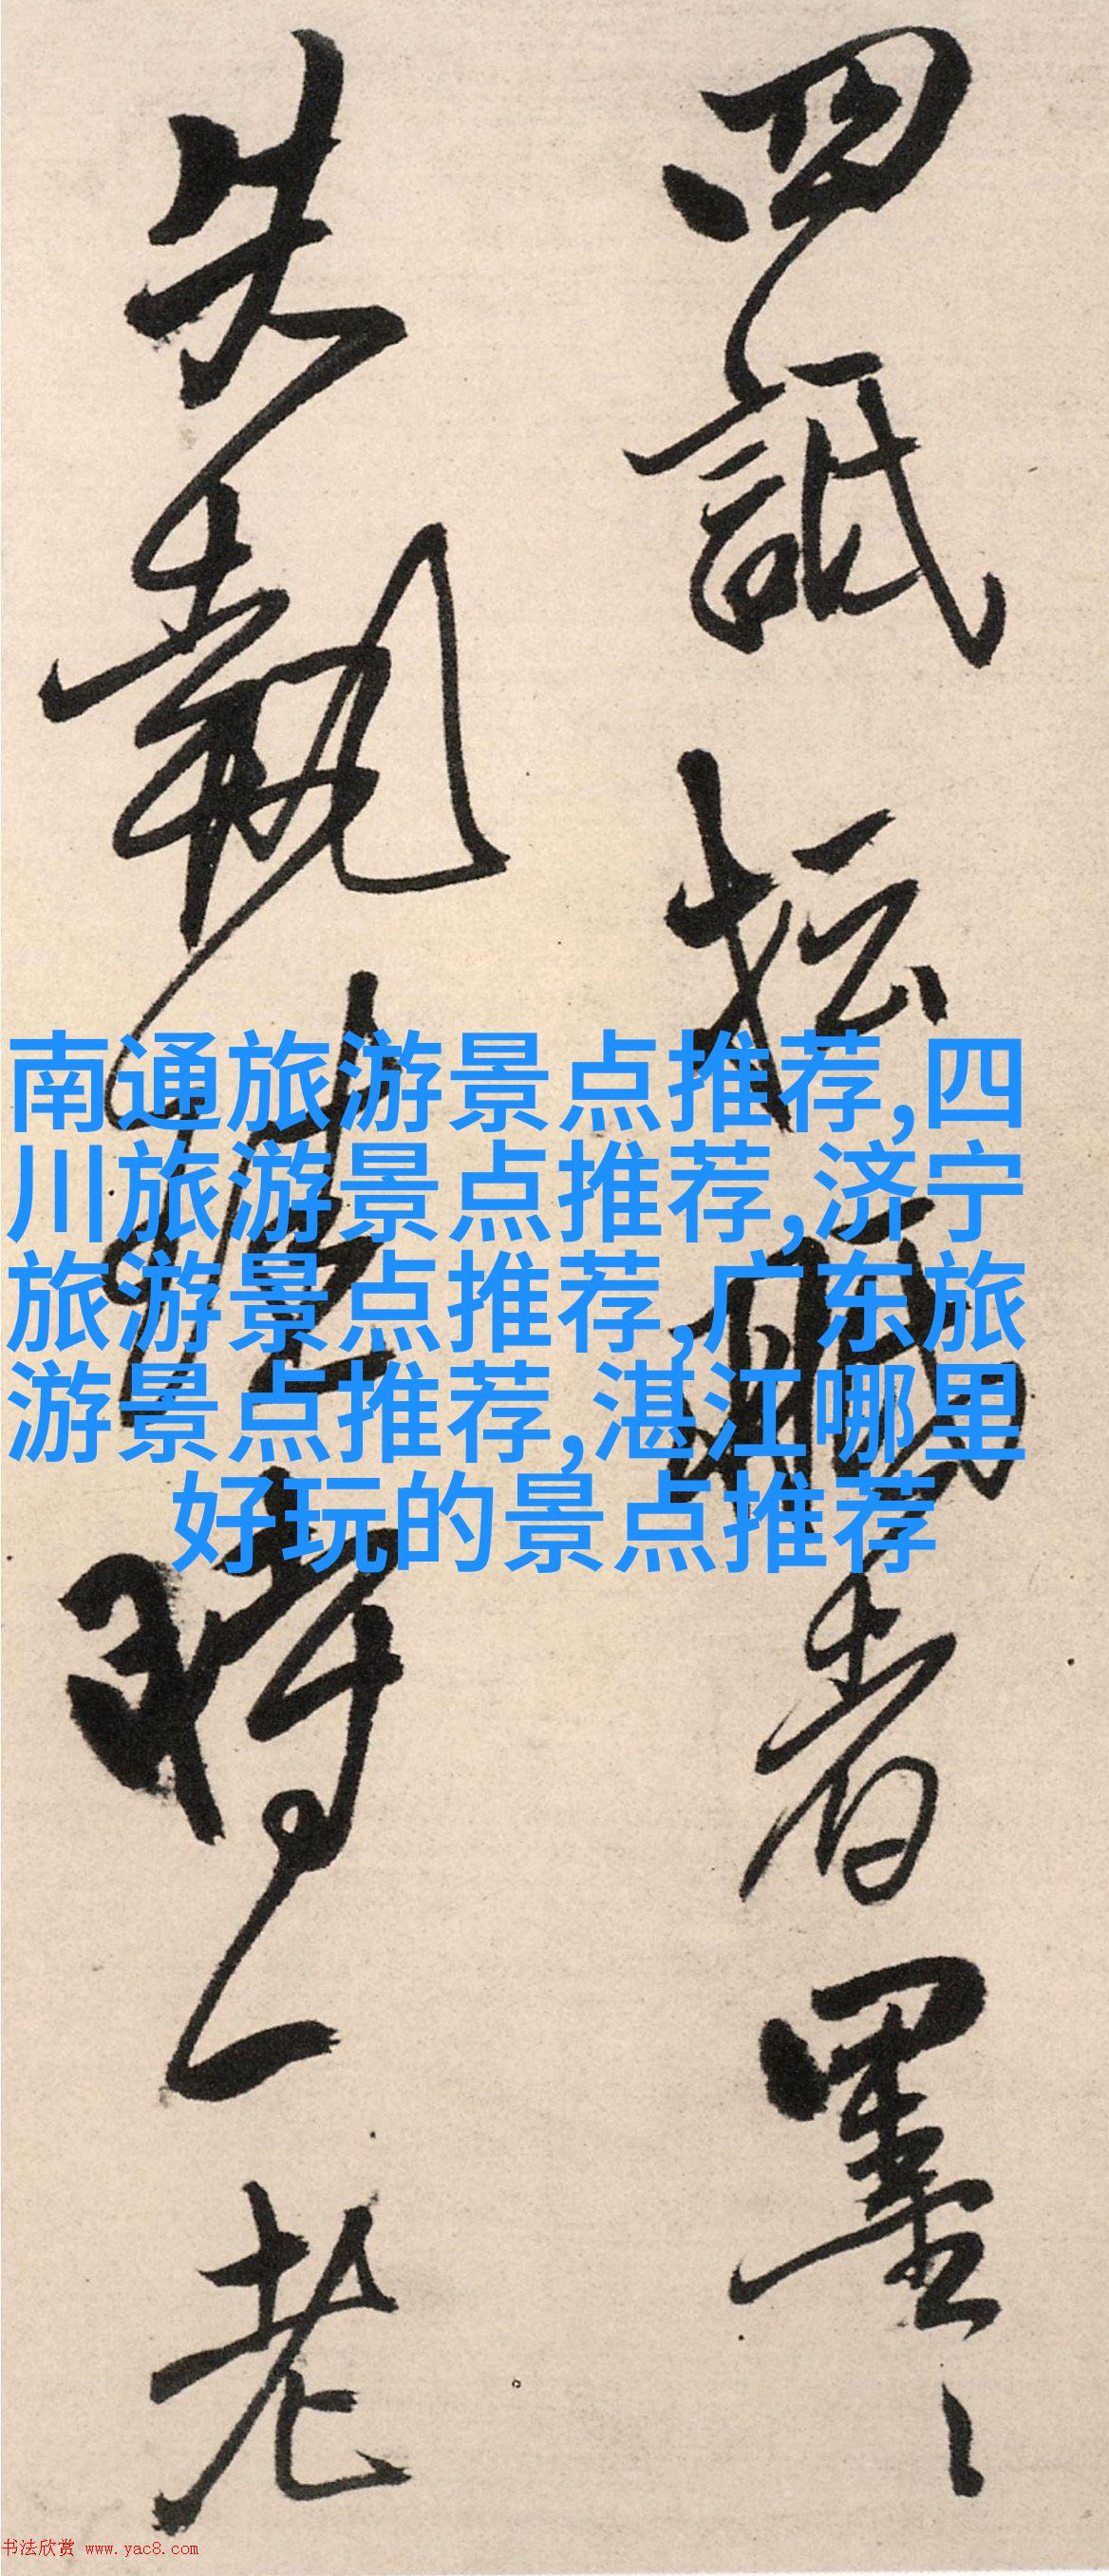 四詆坛
者墨
失執
時一老
南通旅游景点推荐,四
川旅游景点推荐,济宁
旅游景点推荐,广东旅
游景点推荐,湛江哪里
好玩的景点推荐
书法欣赏 www.yac8.com